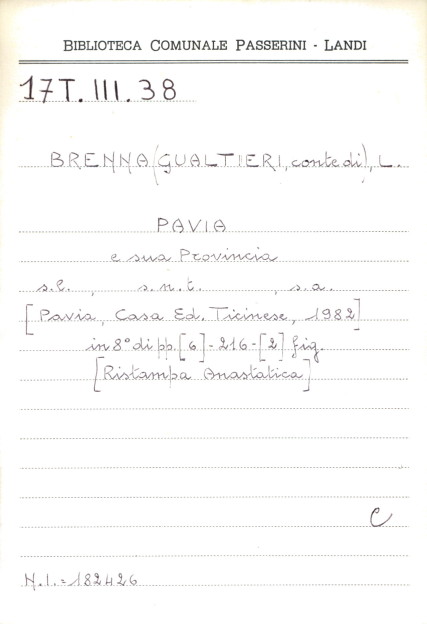 BIBLIOTECA COMUNALE PASSERINI - LANDI
17T.III.38
BRENNA (GUALTIERI, conte di), L.
PAVIA
e sua Provincia
s.l. , s.n.t. , s.a.
[Pavia, Casa Ed. Ticinese, 1982]
in 8° di pp. [6]-216-[2] fig.
[Ristampa Anastatica]
C
N.I.=182426